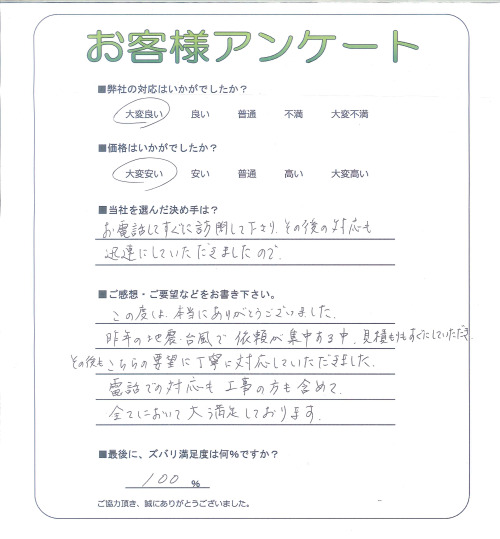 お客様アンケート
■弊社の対応はいかがでしたか？
大変良い 良い 普通 不満 大変不満
■価格はいかがでしたか？
大変安い 安い 普通 高い 大変高い
■当社を選んだ決め手は？
お電話してすぐに訪問して下さり、その後の対応も
迅速にしていただきましたので。
■ご感想・ご要望などをお書き下さい。
この度は、本当にありがとうございました。
昨年の地震・台風で依頼が集中する中、見積もりもすぐにしていただき
その後もこちらの要望に丁寧に対応していただきました。
電話での対応も工事の方も含めて、
全てにおいて大満足しております。
■最後に、ズバリ満足度は何％ですか？
100 %
ご協力頂き、誠にありがとうございました。